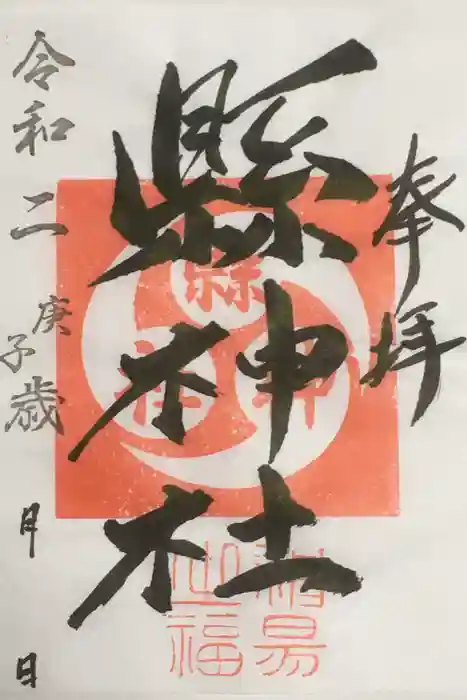 奉拝
縣神社
令和二庚子歳 月 日
縣
神
社